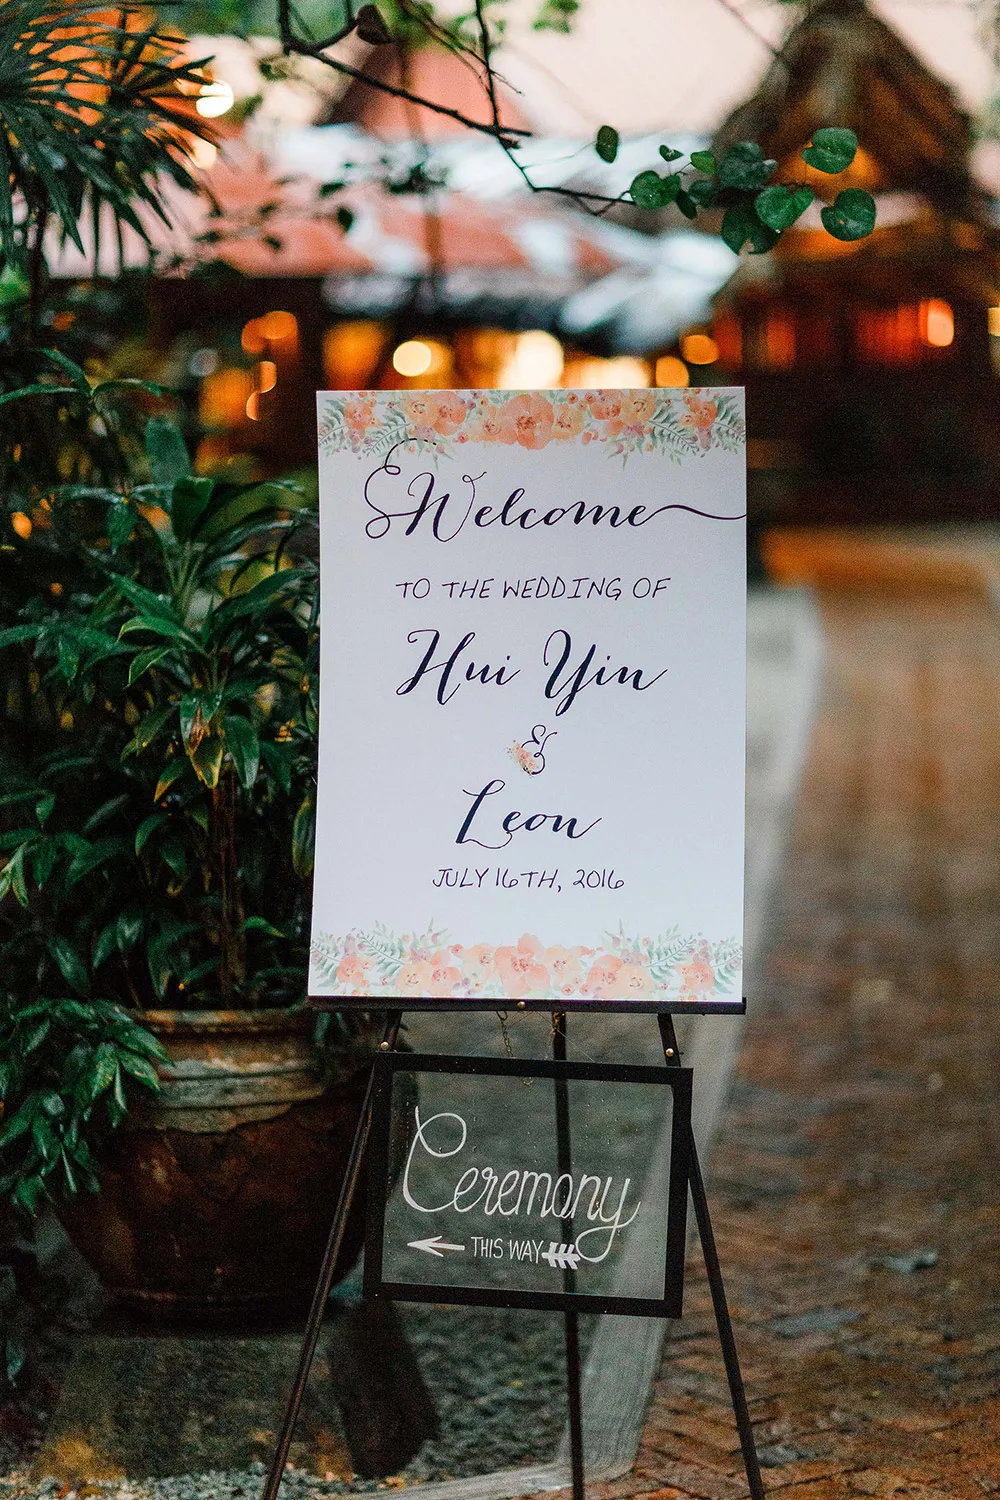 Welcome
TO THE WEDDING OF
Hui Yin
&
Leon
JULY 16TH, 2016
Ceremony
THIS WAY